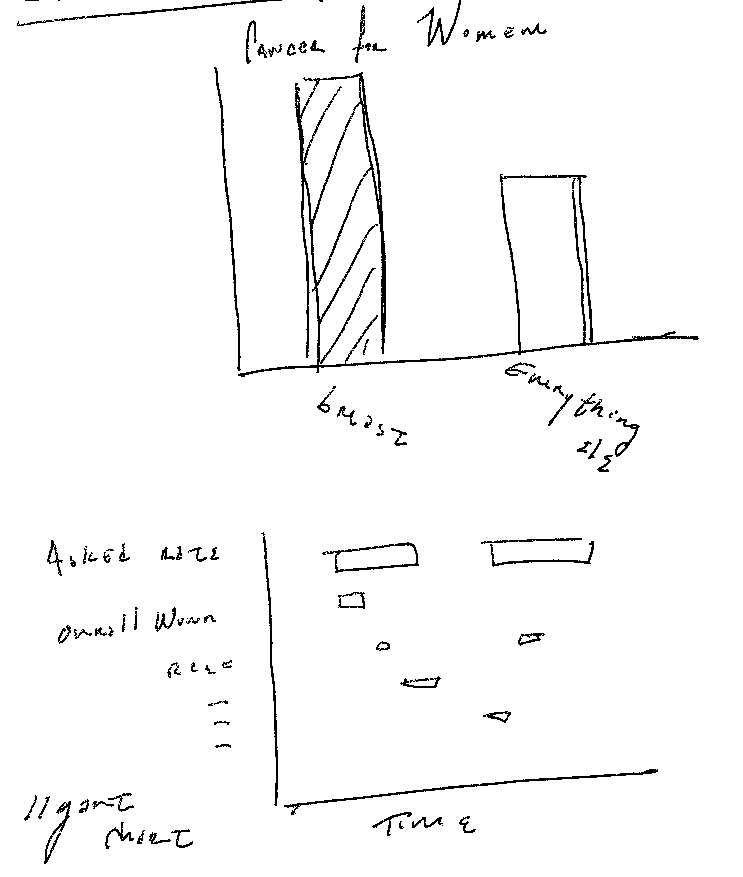 Cancer for Women
breast
Everything
else
Asked rate
overall
Time
// gant
chart